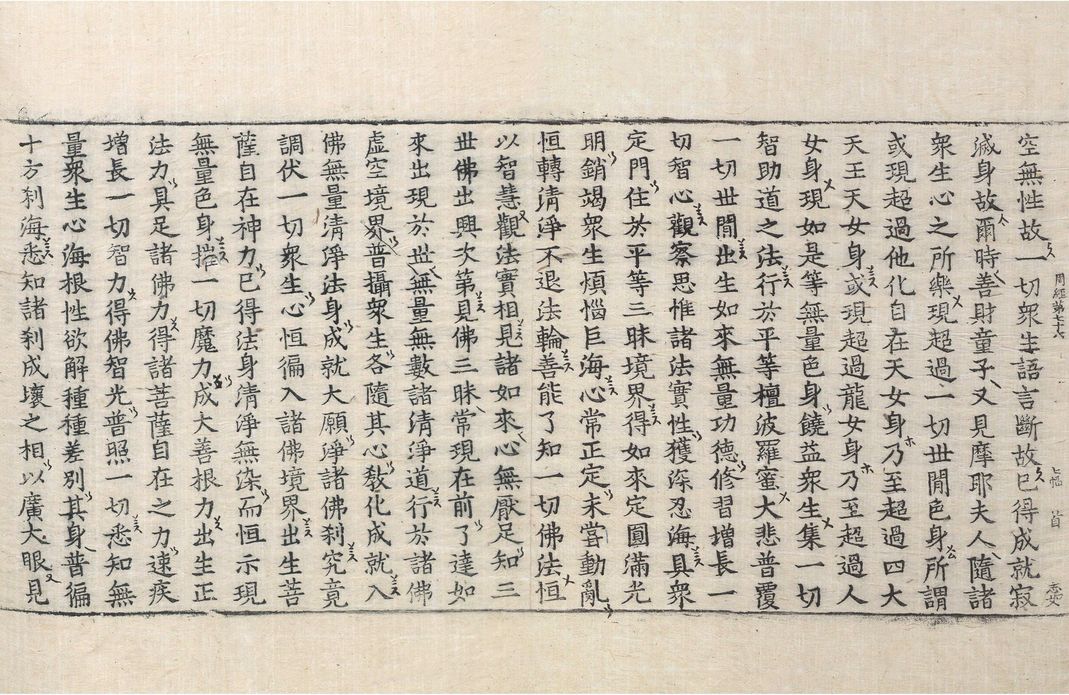 空無性故一切衆生語言斷故已得成就寂
滅身故爾時善財童子又見摩耶夫人隨諸
衆生心之所樂現超過一切世閒色身所謂
或現超過他化自在天女身乃至超過四大
天王天女身或現超過龍女身乃至超過人
女身現如是等無量色身饒益衆生集一切
智助道之法行於平等檀波羅蜜大悲普覆
一切世間出生如來無量功德修習增長一
切智心觀察思惟諸法實性獲深忍海具衆
定門住於平等三昧境界得如來定圓滿光
明銷竭衆生煩惱巨海心常正定未甞動亂
恒轉清淨不退法輪善能了知一切佛法恒
以智慧觀法實相見諸如來心無厭足知三
世佛出興次第見佛三昧常現在前了達如
來出現於世無量無數諸清淨道行於諸佛
虛空境界普攝衆生各隨其心教化成就入
佛無量清淨法身成就大願淨諸佛刹究竟
調伏一切衆生心恒徧入諸佛境界出生菩
薩自在神力已得法身清淨無染而恒示現
無量色身摧一切魔力成大善根力出生正
法力具足諸佛力得諸菩薩自在之力速疾
增長一切智力得佛智光普照一切悉知無
量衆生心海根性欲解種種差別其身普徧
十方刹海悉知諸刹成壞之相以廣大眼見